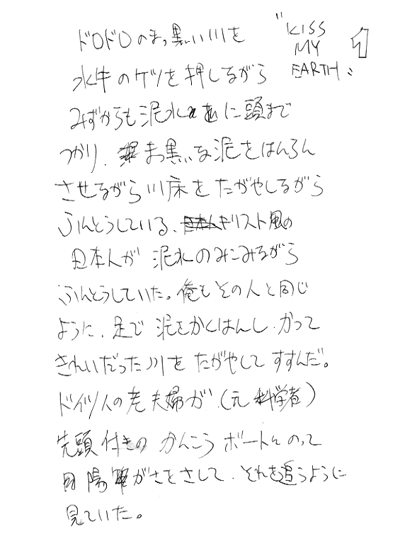 "KISS
MY
EARTH"
1
ドロドロのまっ黒い川を
水牛のケツを押しながら
みずからも泥水に頭まで
つかり、まっ黒な泥をはんらん
させながら川床をたがやしながら
ふんとうしている、キリスト風の
日本人が泥水のみこみながら
ふんとうしていた。俺もその人と同じ
ように、足で泥をかくはんし、かつて
きれいだった川をたがやしてすすんだ。
ドイツ人の老夫婦が、(元科学者)
先頭付きのかんこうボートにのって
日陽がさをさして、それを追うように
見ていた。